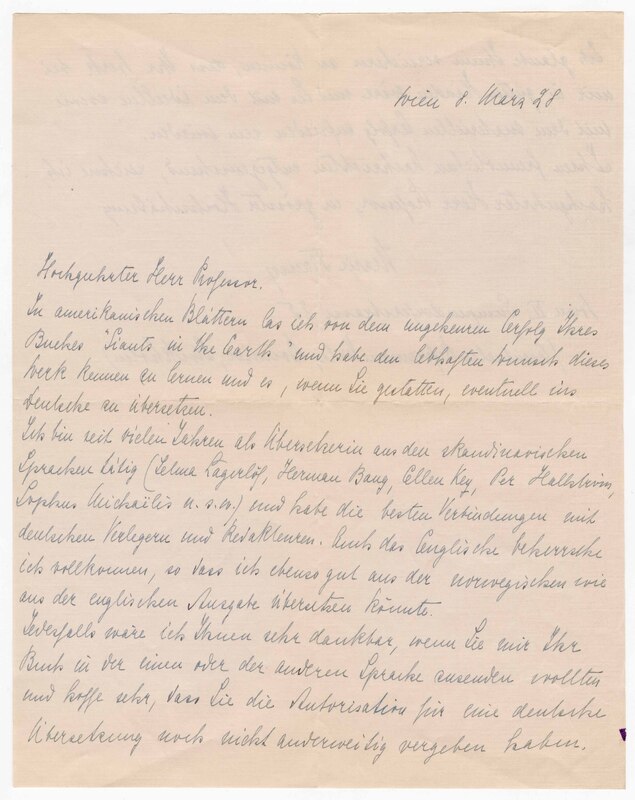 Wien 8. März 28
Hochgeehrter Herr Professor.
In amerikanischen Blättern las ich von dem ungeheuren Erfolg Ihres
Buches "Giants in the Earth" und habe den lebhaften Wunsch dieses
Werk kennen zu lernen und es, wenn Sie gestatten, eventuell ins
Deutsche zu übersetzen.
Ich bin seit vielen Jahren als Übersetzerin aus den skandinavischen
Sprachen tätig (Selma Lagerlöf, Herman Bang, Ellen Key, Per Hallström,
Sophus Michaëlis u. s. w.) und habe die besten Verbindungen mit
deutschen Verlegern und Redakteuren. Auch das Englische beherrsche
ich vollkommen, so dass ich ebenso gut aus der norwegischen wie
aus der englischen Ausgabe übersetzen könnte.
Jedesfalls wäre ich Ihnen sehr dankbar, wenn Sie mir Ihr
Buch in der einen oder der anderen Sprache zusenden wollten
und hoffe sehr, dass Sie die Autorisation für eine deutsche
Übersetzung noch nicht anderweitig vergeben haben.